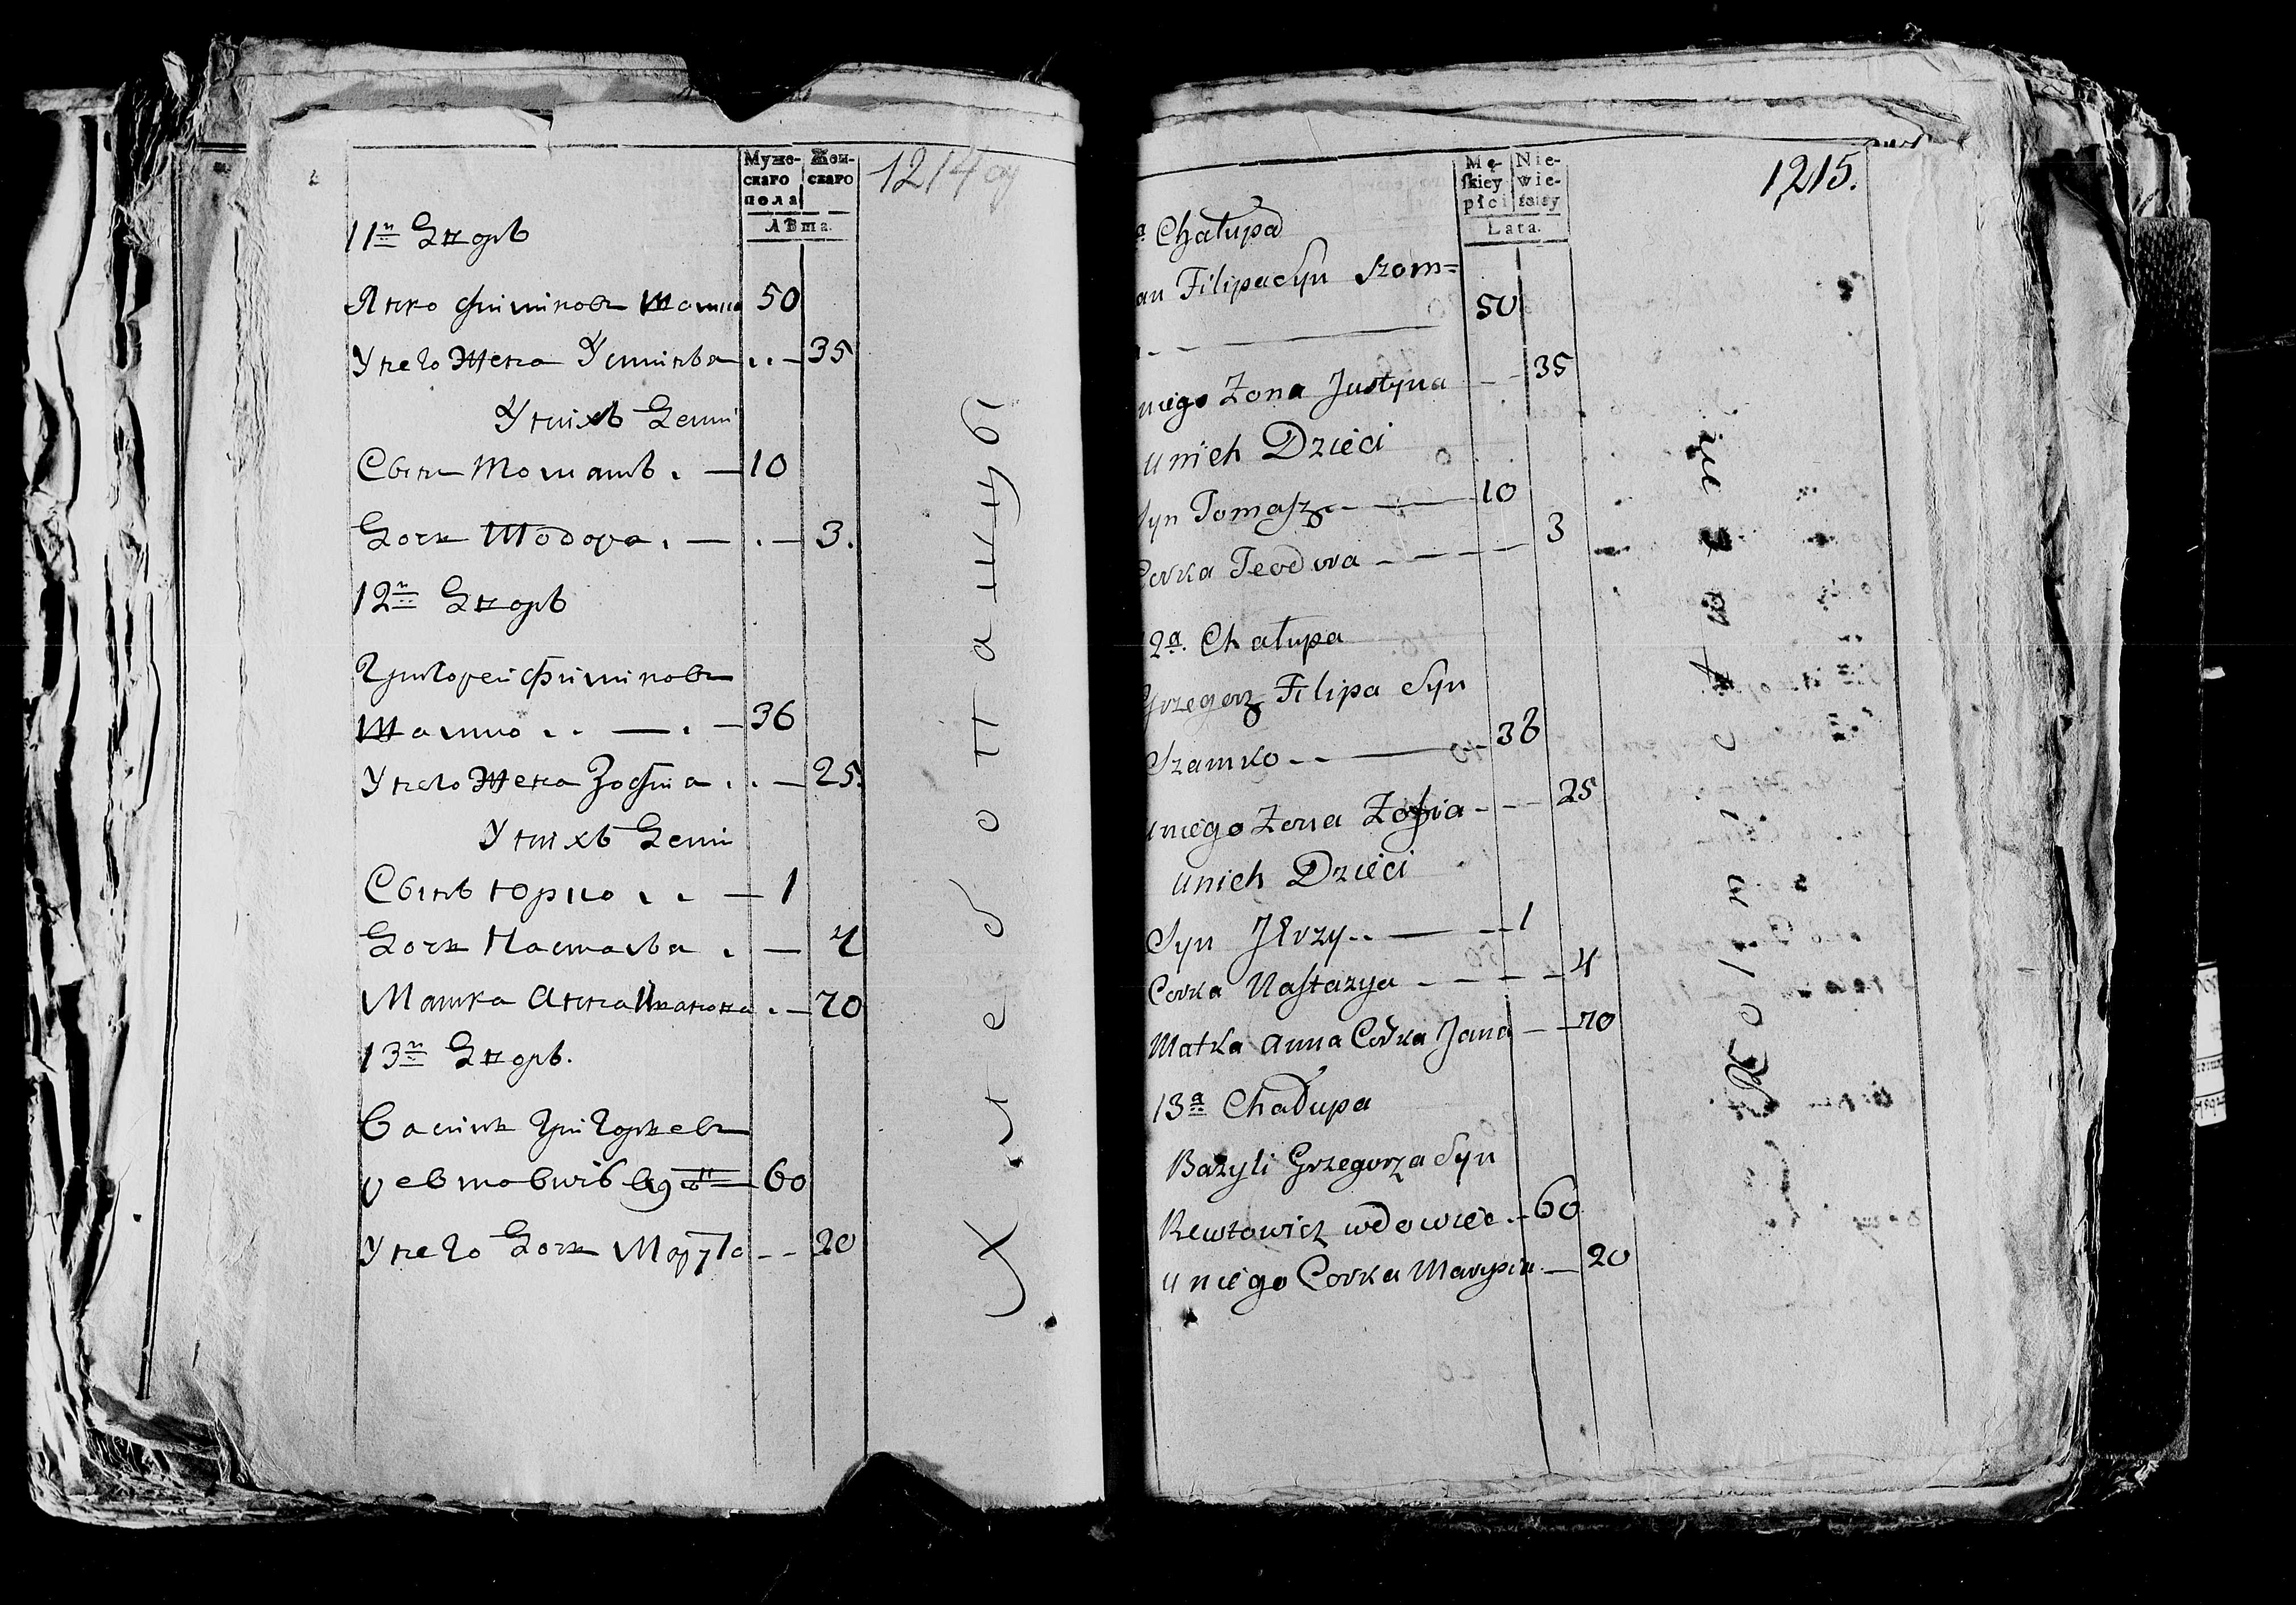 Муже-
скаго
пола
Жен-
скаго
Лѣта.
1214
11й Дворъ
Янко Филиповъ Шомко 50
У него Жена Устинья . . — 35
У нихъ Дети
Сынъ Томашъ . — 10
Дочь Тодора . — . — 3.
12й Дворъ
Григорей Филиповъ
Шамко . . — . — 36
У него Жена Зофия . . — 25.
У нихъ Дети
Сынъ Юрко . . — 1
Дочь Настасья . — 4
Матка Анна Иванова . — 70
13й Дворъ.
Василь Григорьевъ
60
У него Дочь — — 20
Хлебопашцы
Mę-
skiey
płci
Nie-
wie-
Lata.
1215.
a Chałupa
an Filipa Syn Szom=
— 50
niego Zona Justyna — — 35
u nich Dzieci
Syn Tomasz — 10
Corka Teodora — — — 3
12a. Chałupa
Grzegorz Filipa Syn
Szamko — — 36
u niego Zona Zofia — — 25
u nich Dzieci
Syn Jerzy — — 1
Corka Nastazya — — — 4
Matka Anna Corka Jana — — 70
13a Chałupa
Bazyli Grzegorza Syn
Rewtowicz wdowiec — 60
u niego Corka Marysia — 20
Rolnictwem